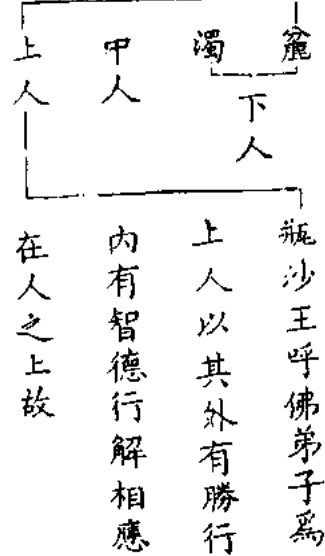 麁
濁
下人
中人
上人
瓶沙王呼佛弟子爲
上人以其外有勝行
內有智德行解相應
在人之上故